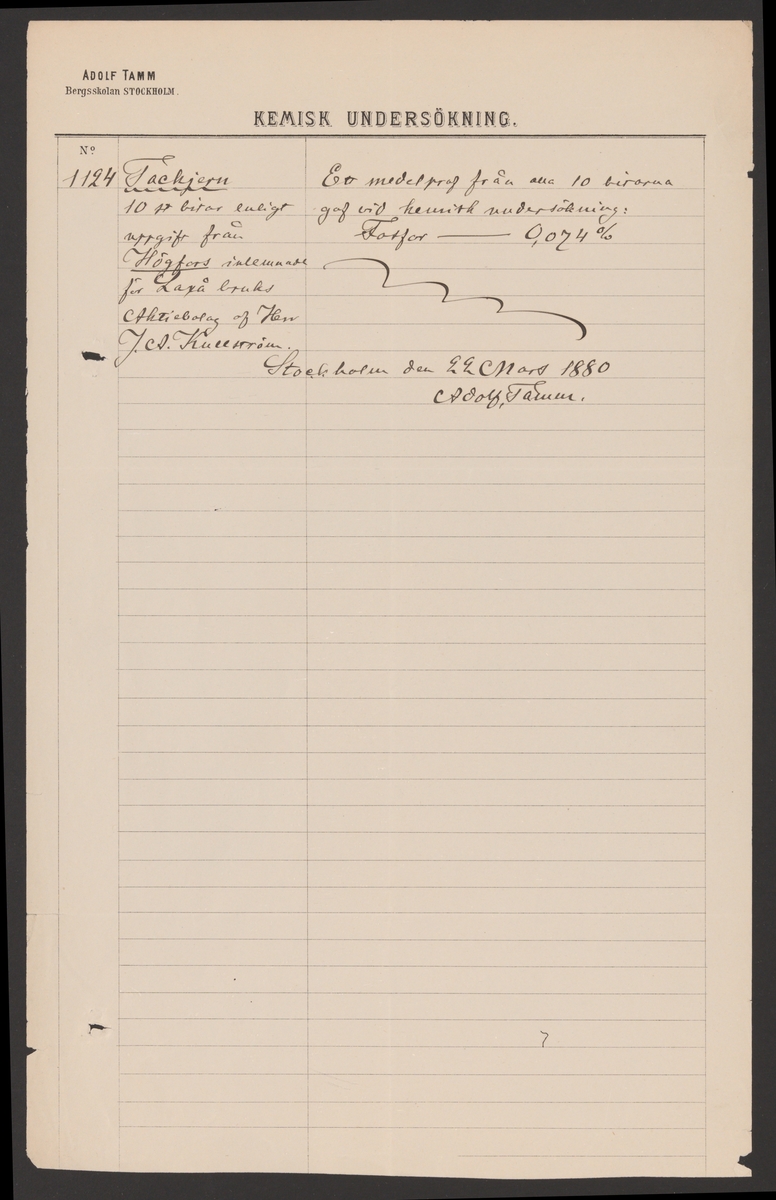 ADOLF TAMM
Bergsskolan STOCKHOLM.
KEMISK UNDERSÖKNING.
No
1124 Tackjern
10 st bitar enligt
uppgift från
Högfors inlemnade
för Laxå bruks
Aktiebolag af Herr
J. A. Kullström.
Ett medelprof från alla 10 bitarna
gaf vid kemisk undersökning:
Fosfor — 0,074 %
Stockholm den 22 Mars 1880
Adolf Tamm.